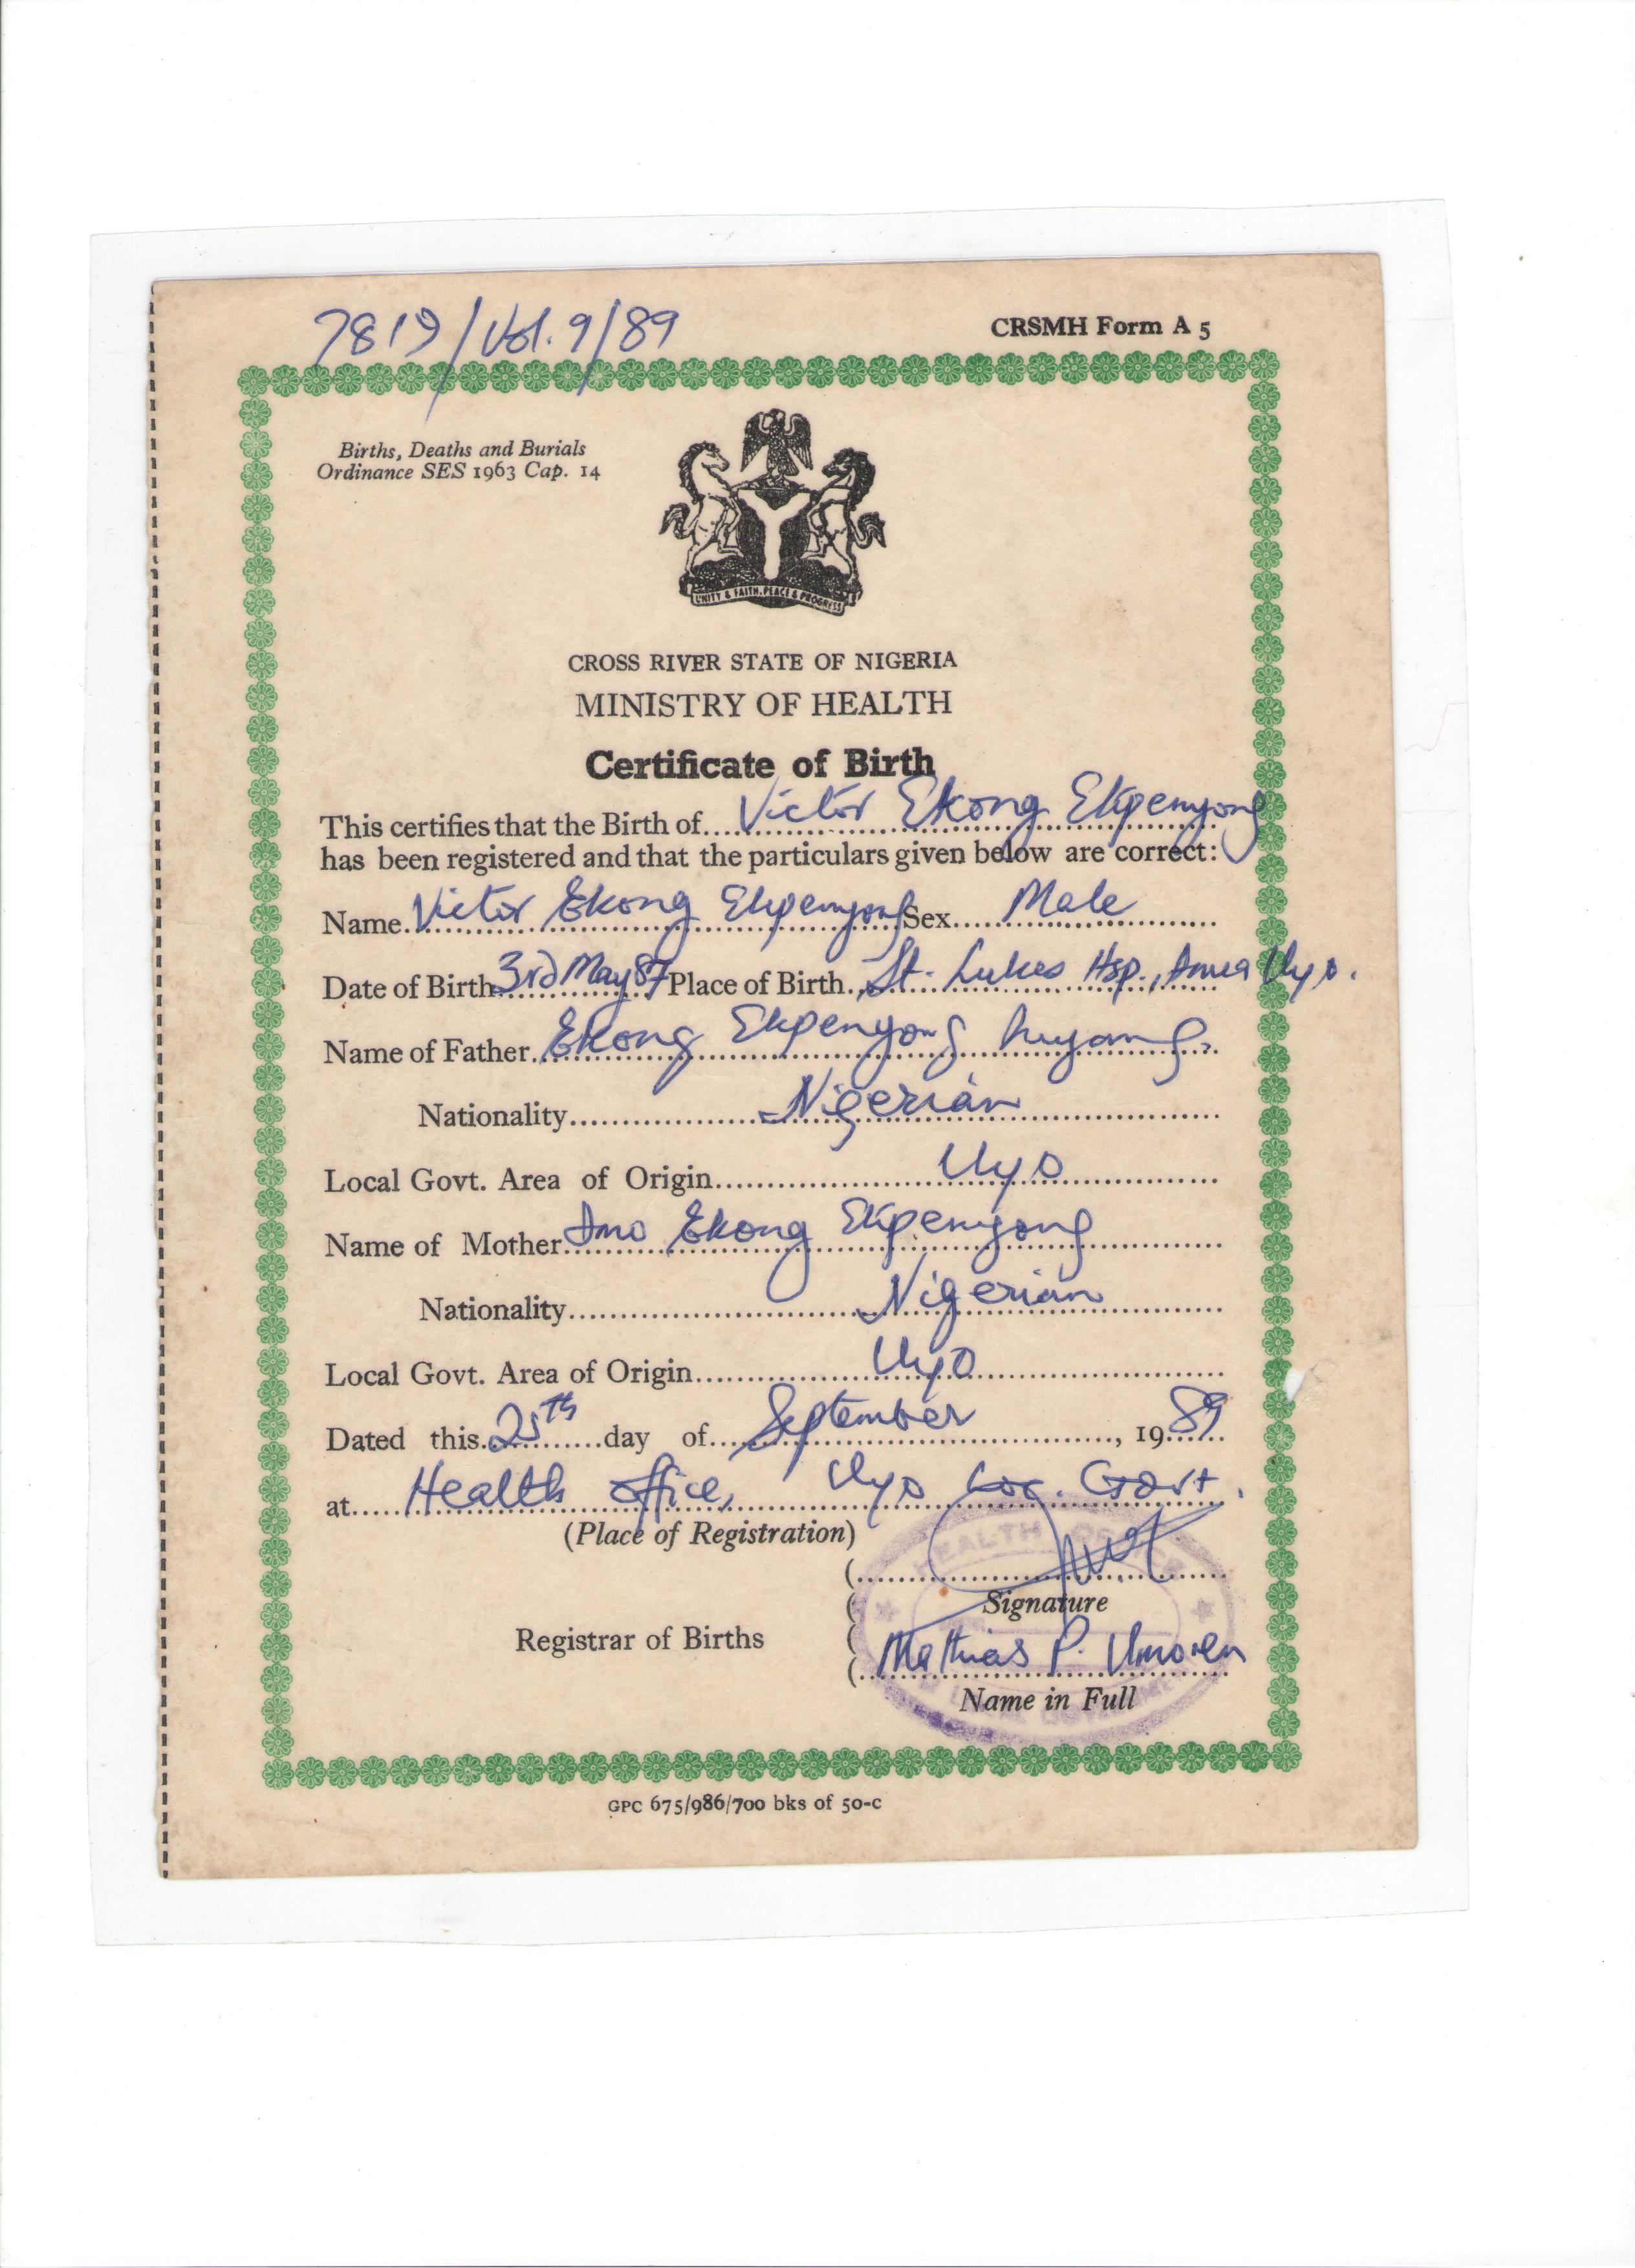 7819/Vol.9/89
CRSMH Form A 5
Births, Deaths and Burials
Ordinance SES 1963 Cap. 14
UNITY & FAITH, PEACE & PROGRESS
CROSS RIVER STATE OF NIGERIA
MINISTRY OF HEALTH
Certificate of Birth
This certifies that the Birth of Victor Ekong Ekpenyong
has been registered and that the particulars given below are correct:
Name Victor Ekong Ekpenyong Sex Male
Date of Birth 3rd May 87 Place of Birth St. Lukes Hsp., Anua Uyo.
Name of Father Ekong Ekpenyong
Nationality Nigerian
Local Govt. Area of Origin Uyo
Name of Mother Ekong Ekpenyong
Nationality Nigerian
Local Govt. Area of Origin Uyo
Dated this 25th day of September, 1989
at Health office, Uyo Loc. Govt.
(Place of Registration)
HEALTH
Signature
Registrar of Births
Mathias P. Umoren
Name in Full
GPC 675/986/700 bks of 50-c